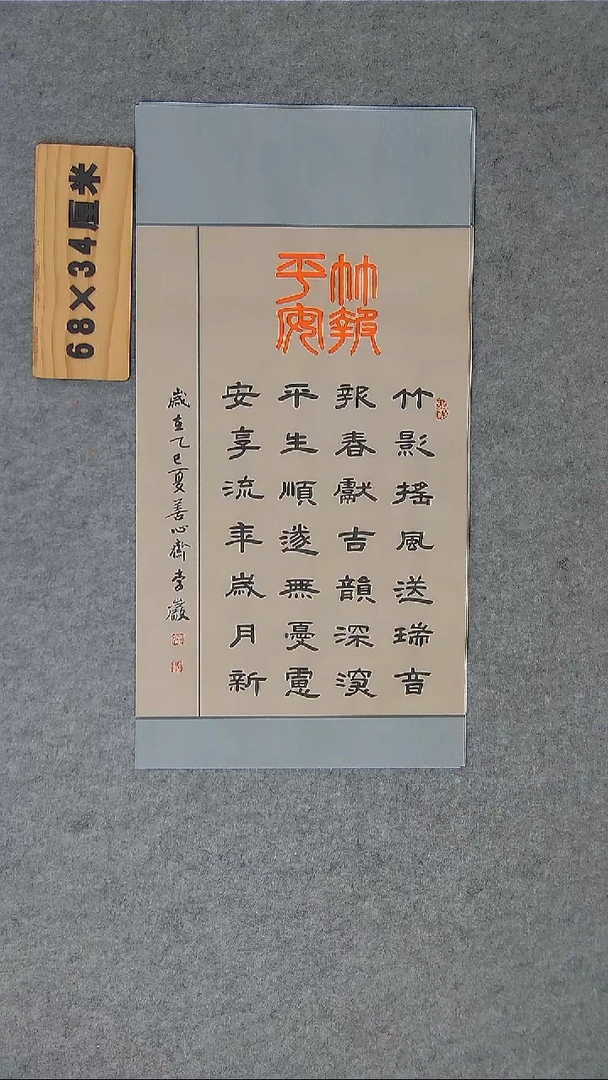 68×34厘米
竹報
平安
竹影搖風送瑞音
報春獻吉韻深深
平生順遂無憂慮
安享流年歲月新
歲在乙巳夏善心齋李巖